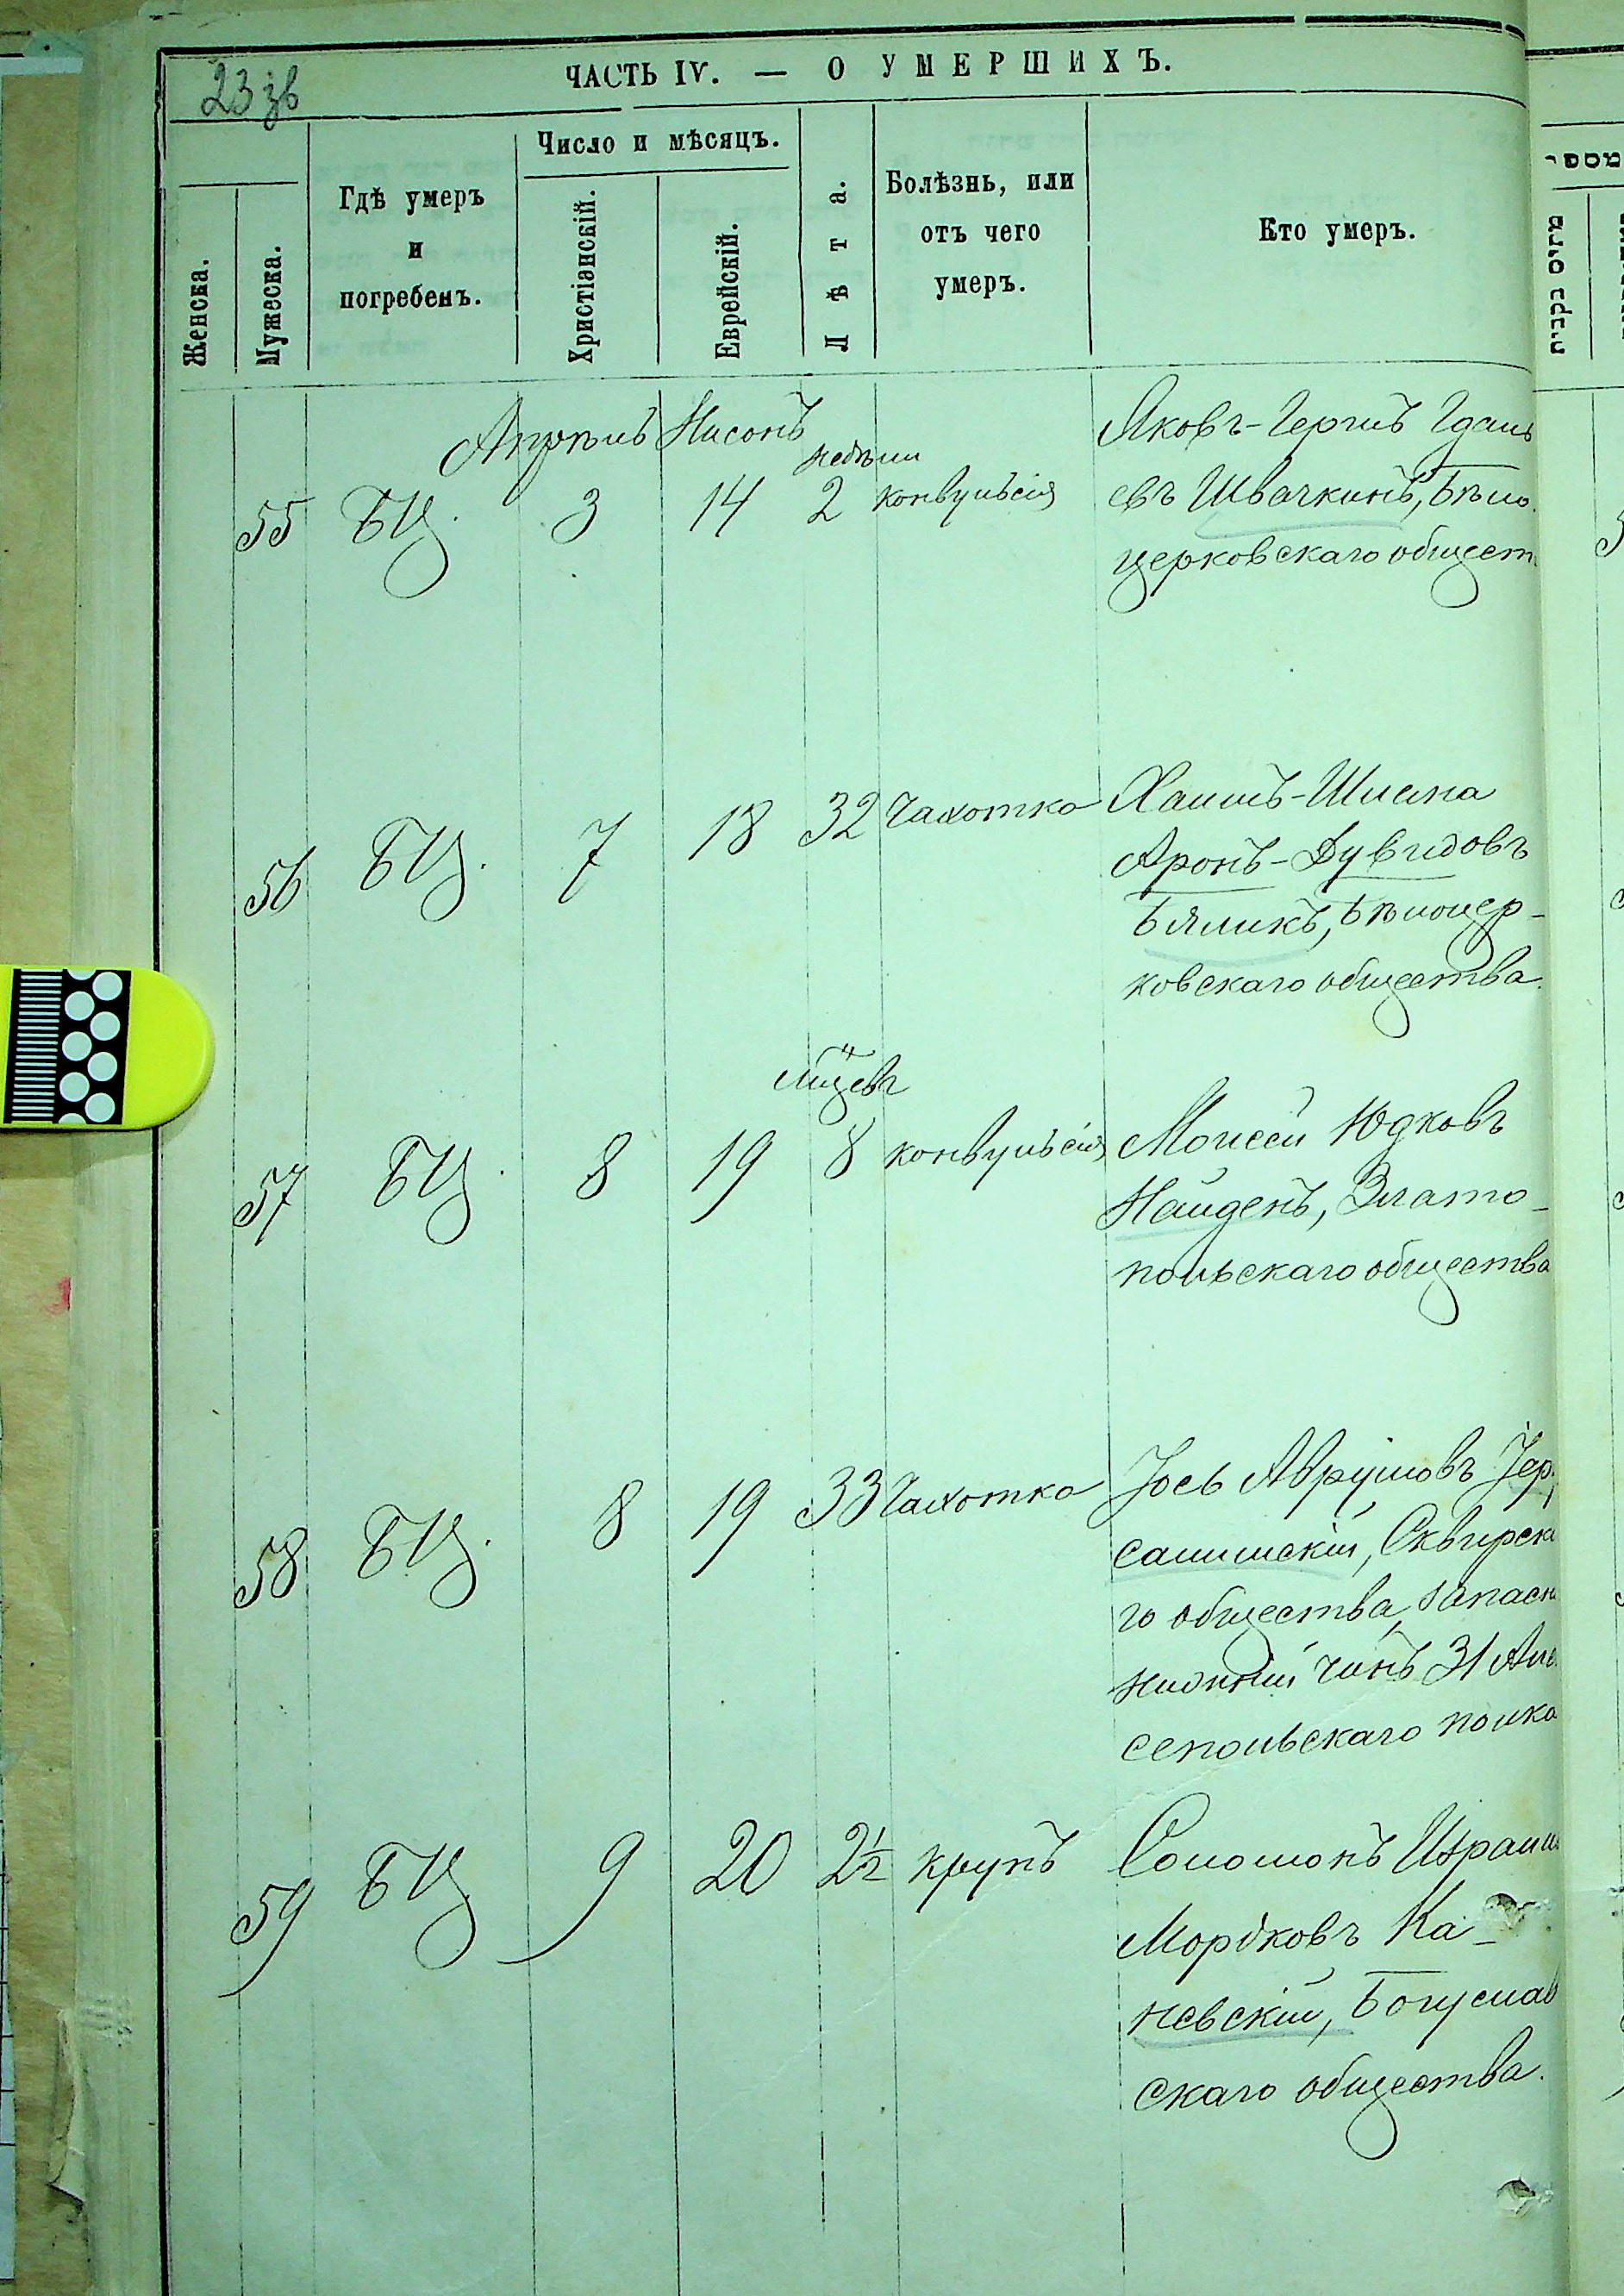 23 зв
ЧАСТЬ IV. — О УМЕРШИХЪ.
Женска.
Мужеска.
Гдѣ умеръ
и
погребенъ.
Число и мѣсяцъ.
Христіанскій.
Еврейскій.
Лѣта.
Болѣзнь, или
отъ чего
умеръ.
Кто умеръ.
מספר
מתים בקבית
Апрѣль Нисонъ
55 БЦ. 3 14 недѣли 2 конвульсія
Яковъ-Гершъ
евъ Швачкинъ, Бѣло
церковскаго общест
56 БЦ. 7 18 32 Чахотка
Хаимъ-Шлема
Аронъ-Дувидовъ
Бяликъ, Бѣлоцер-
ковскаго общества.
57 БЦ. 8 19 мцевъ 8 конвульсія
Моисей Юдковъ
Найденъ, Злато-
польскаго общества
58 БЦ. 8 19 33 Чахотка
Іось Аврумовъ Іер
салимскій, Сквирска
го общества, запасн
нижній чинъ 31 Але
сепольскаго полка
59 БЦ 9 20 2½ крупъ
Соломонъ Израил
Мордковъ Ка-
невскій, Богуслав
скаго общества.